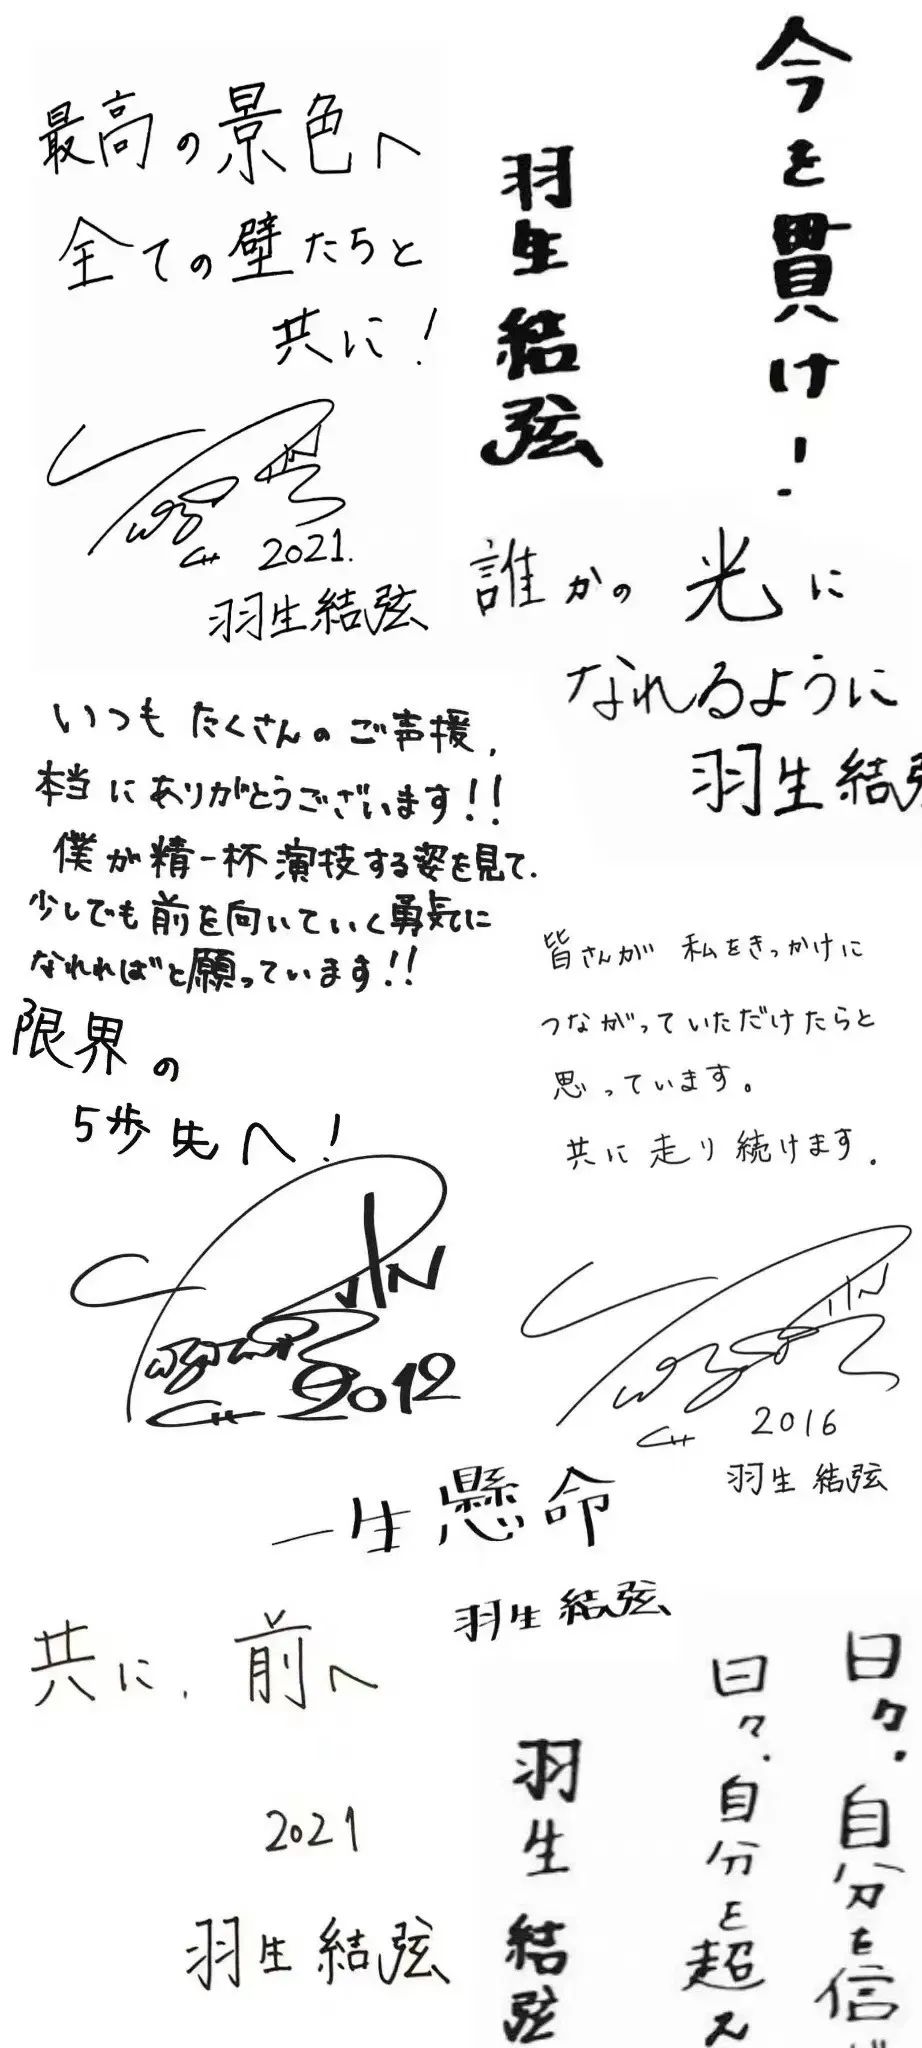 最高の景色へ
全ての壁たちと
共に！
2021.
羽生結弦
今を貫け！
羽生結弦
誰かの光に
なれるように
羽生結弦
いつもたくさんのご声援、
本当にありがとうございます!!
僕が精一杯演技する姿を見て、
少しでも前を向いていく勇気に
なれればと願っています!!
限界の
5歩先へ！
2012
皆さんが私をきっかけに
つながっていただけたらと
思っています。
共に走り続けます．
2016
羽生結弦
一生懸命
羽生結弦
共に、前へ
2021
羽生結弦
日々、自分を信
日々、自分を超え
羽生結弦